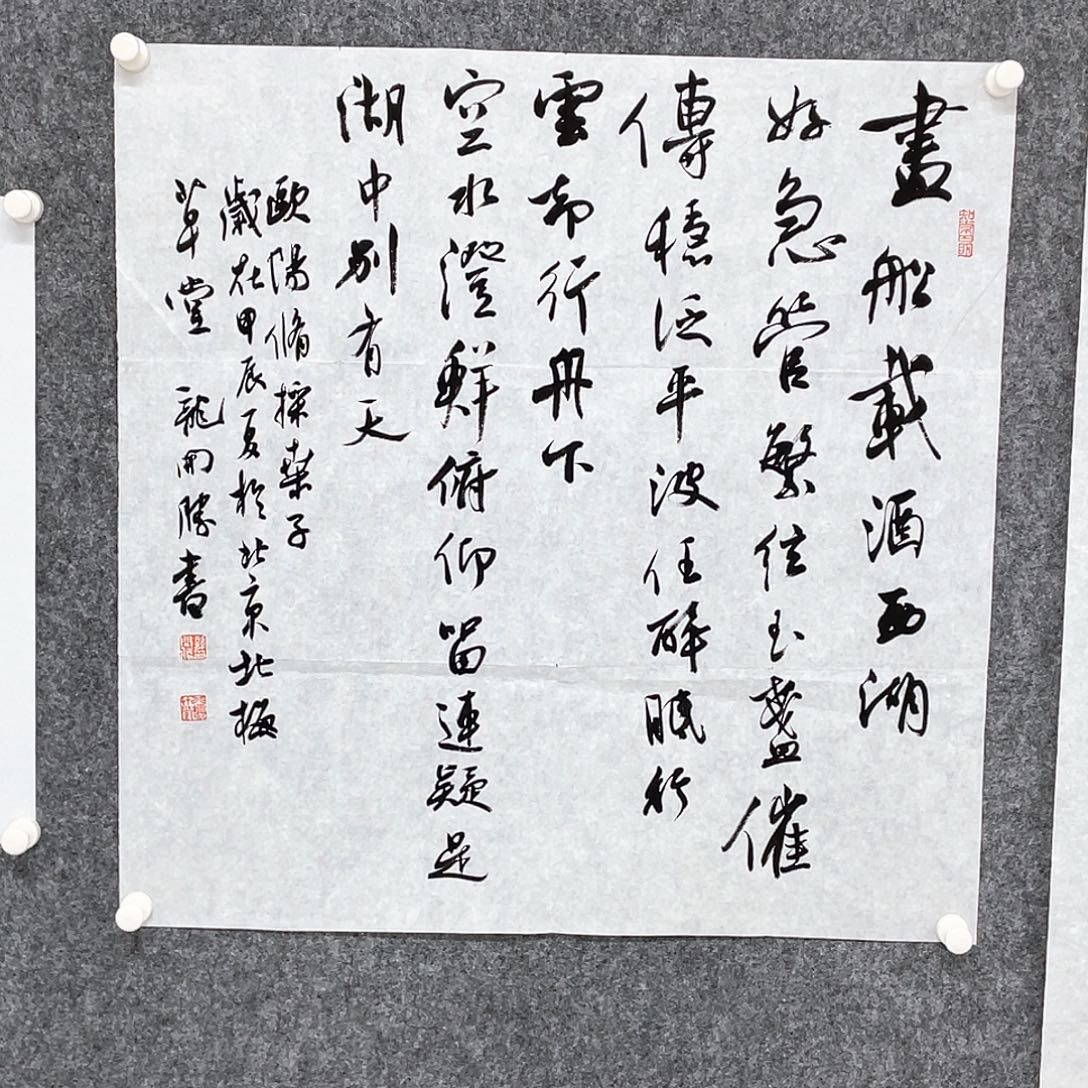 畫船載酒西湖
好急管繁絃玉盞催
傳穩泛平波任醉眠行
雲却行舟下
空水澄鮮俯仰留連疑是
湖中別有天
歐陽脩採桑子
歲在甲辰夏於北京北梅
草堂 龍開勝書